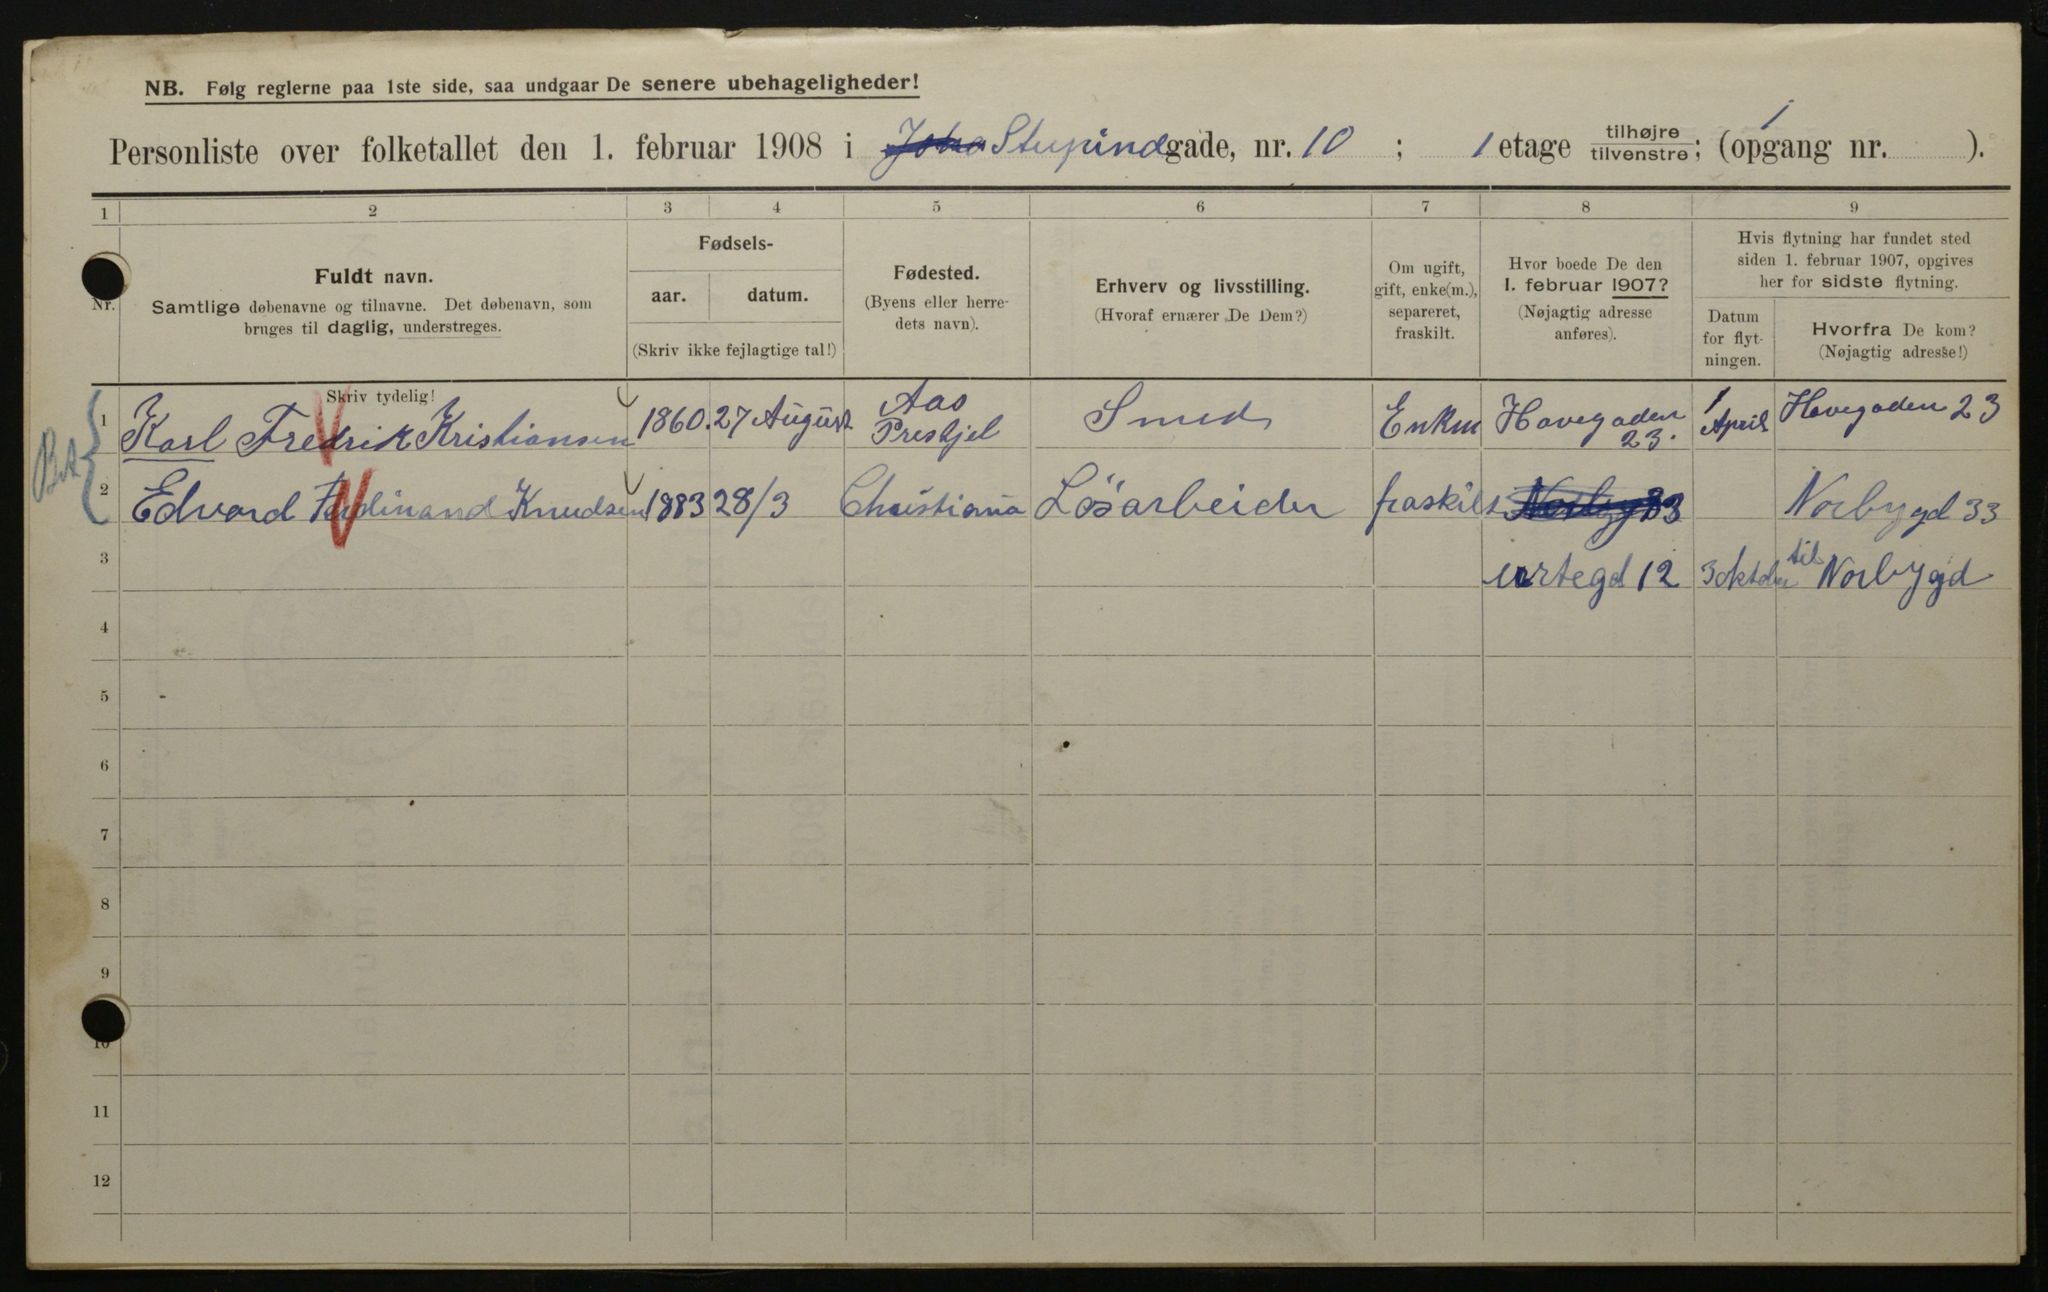 NB. Følg reglerne paa 1ste side, saa undgaar De senere ubehageligheder!
Personliste over folketallet den 1. februar 1908 i Stupindgade, nr. 10 ; 1 etage tilhøjre/tilvenstre; (opgang nr. 1 ).
1 2 3 4 5 6 7 8 9
Nr.
Fuldt navn.
Samtlige døbenavne og tilnavne. Det døbenavn, som
bruges til daglig, understreges.
Skriv tydelig!
Fødsels-
aar. datum.
(Skriv ikke fejlagtige tal!)
Fødested.
(Byens eller herre-
dets navn).
Erhverv og livsstilling.
(Hvoraf ernærer De Dem?)
Om ugift,
gift, enke(m.),
separeret,
fraskilt.
Hvor boede De den
1. februar 1907?
(Nøjagtig adresse
anføres).
Hvis flytning har fundet sted
siden 1. februar 1907, opgives
her for sidste flytning.
Datum
for flyt-
ningen.
Hvorfra De kom?
(Nøjagtig adresse!)
1 Karl Fredrik Kristiansen 1860. 27 August Aas Presgjel Smed Enkm Havegaden 23. 1 April Havegaden 23
2 Edvard Ferdinand Knudsen 1883 28/3 Christiania Lösarbeider fraskilt Norbyg 33 Norbygd 33
3 urtegd 12 3 oktober til Norbygd
4
5
6
7
8
9
10
11
12